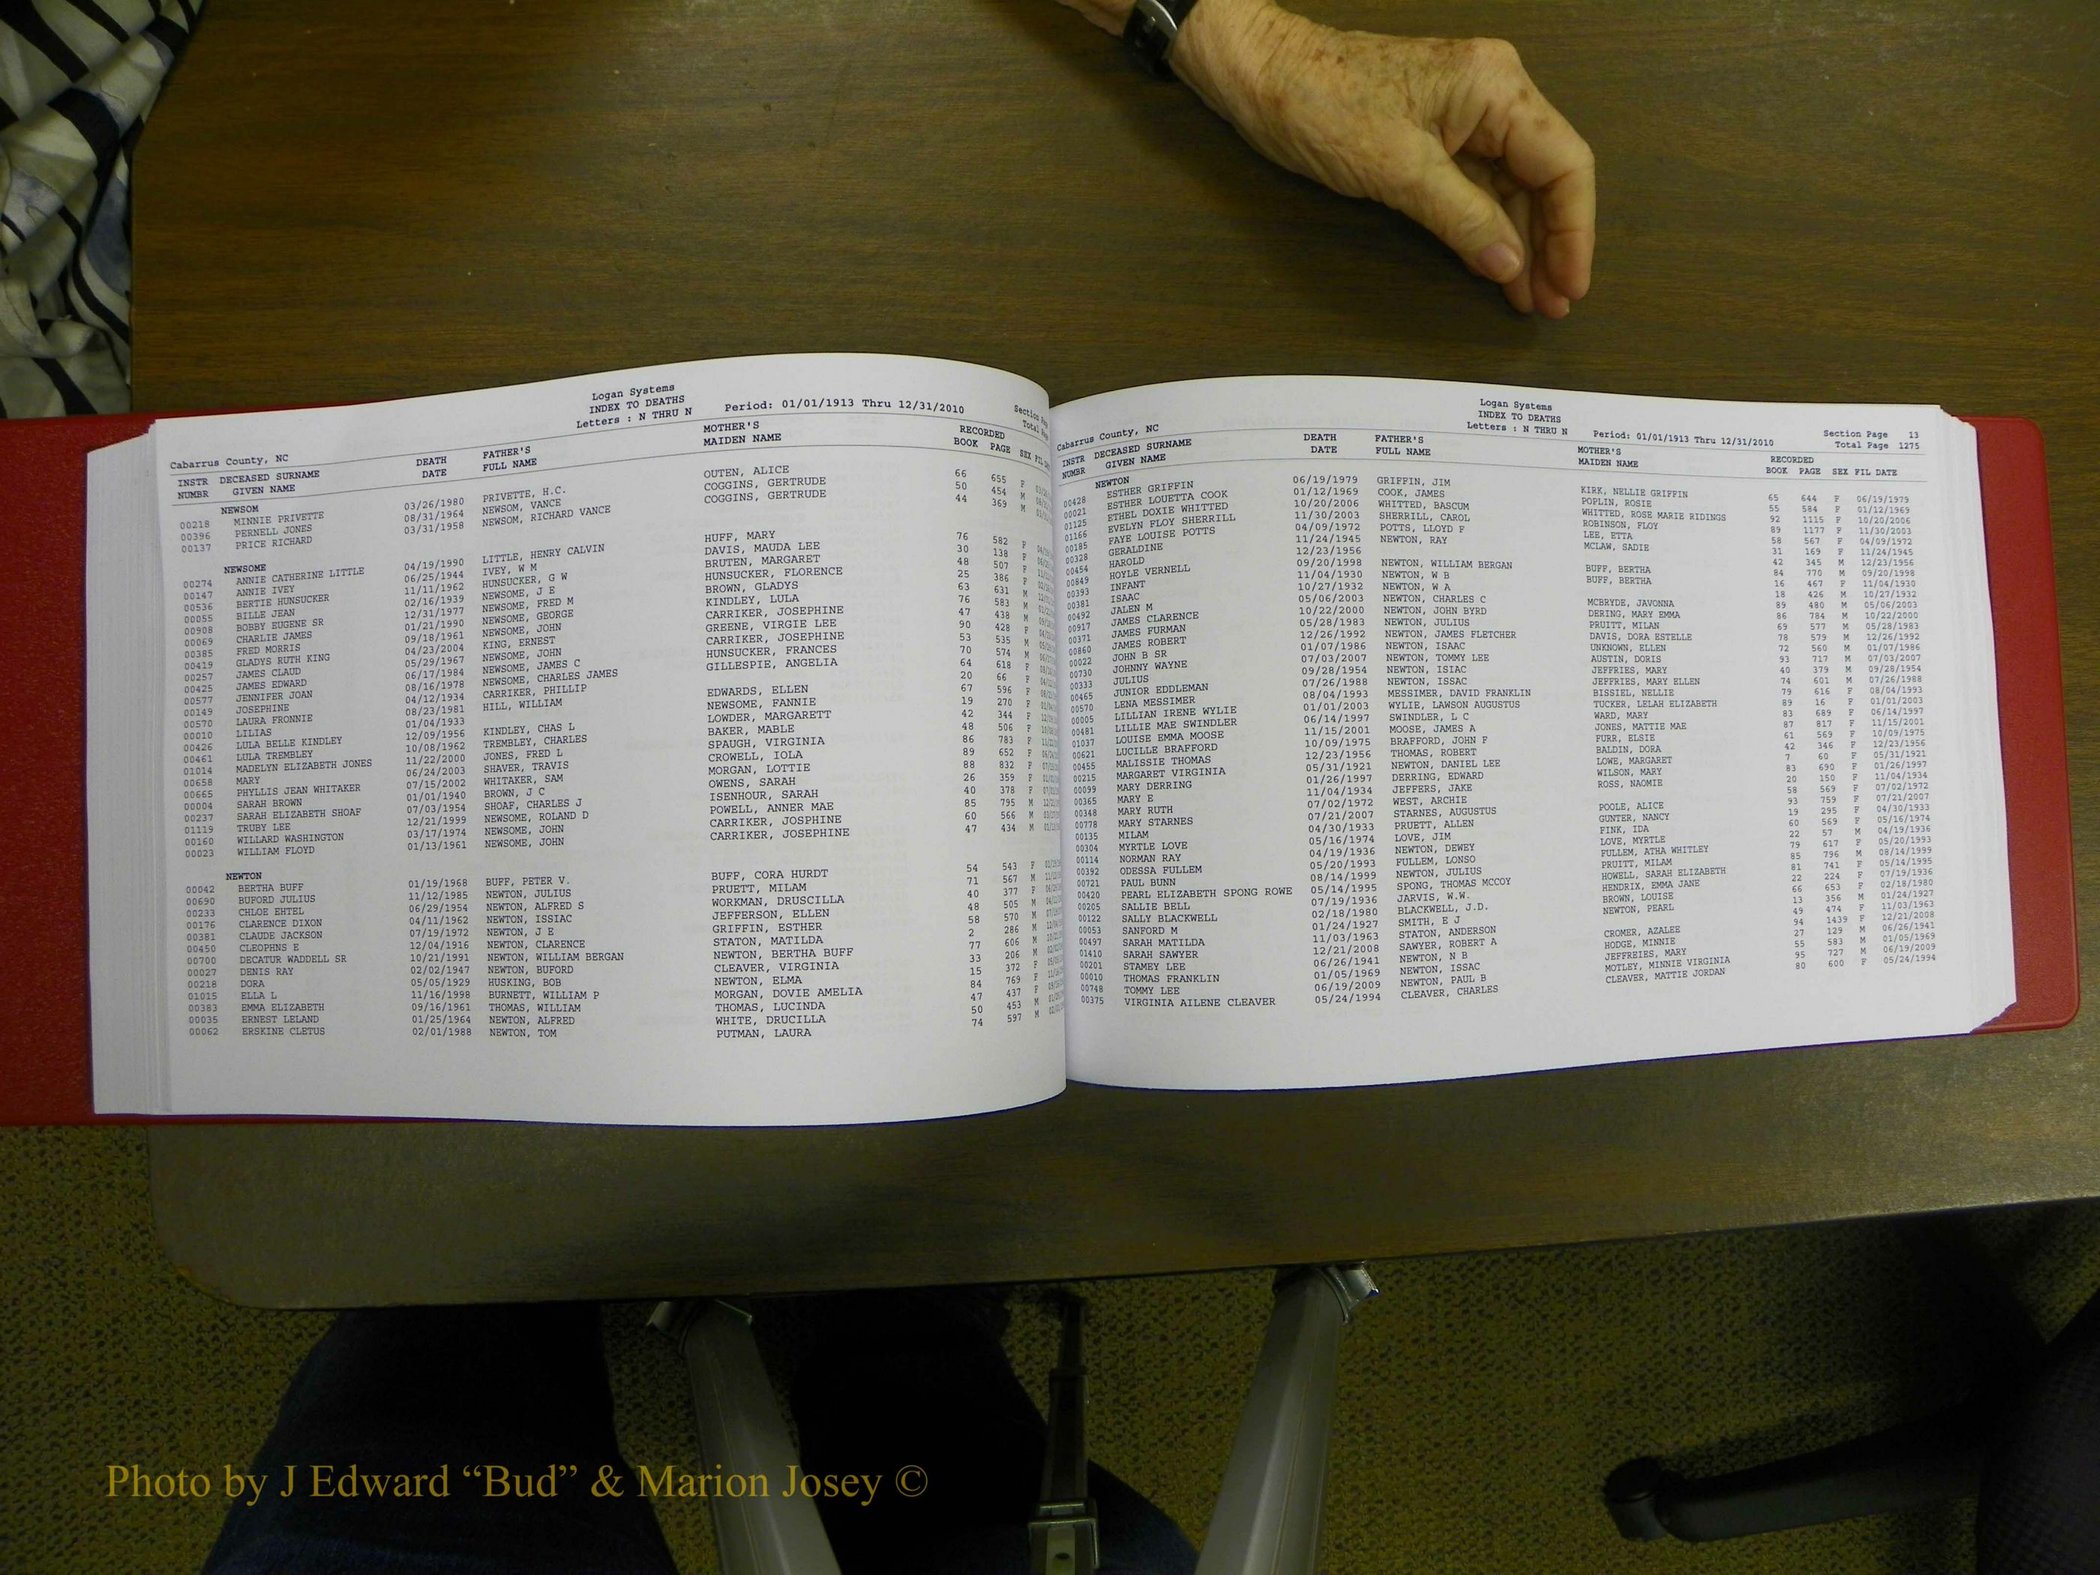 Logan Systems
INDEX TO DEATHS
Letters : N THRU N Period: 01/01/1913 Thru 12/31/2010
Total
Cabarrus County, NC
INSTR DECEASED SURNAME DEATH FATHER'S MOTHER'S RECORDED
NUMBR GIVEN NAME DATE FULL NAME MAIDEN NAME BOOK PAGE SEX FIL
NEWSOM
00218 MINNIE PRIVETTE 03/26/1980 PRIVETTE, H.C. OUTEN, ALICE 66 655 F
00396 PERNELL JONES 08/31/1964 NEWSOM, VANCE COGGINS, GERTRUDE 50 454 M
00137 PRICE RICHARD 03/31/1958 NEWSOM, RICHARD VANCE COGGINS, GERTRUDE 44 369 M
NEWSOME
00274 ANNIE CATHERINE LITTLE 04/19/1990 LITTLE, HENRY CALVIN HUFF, MARY 76 582 F
00147 ANNIE IVEY 06/25/1944 IVEY, W M DAVIS, MAUDA LEE 30 138 F
00536 BERTIE HUNSUCKER 11/11/1962 HUNSUCKER, G W BRUTEN, MARGARET 48 507 F
00055 BILLE JEAN 02/16/1939 NEWSOME, J E HUNSUCKER, FLORENCE 25 386 F
00908 BOBBY EUGENE SR 12/31/1977 NEWSOME, FRED M BROWN, GLADYS 63 631 M
00069 CHARLIE JAMES 01/21/1990 NEWSOME, GEORGE KINDLEY, LULA 76 583 M
00385 FRED MORRIS 09/18/1961 NEWSOME, JOHN CARRIKER, JOSEPHINE 47 438 M
00419 GLADYS RUTH KING 04/23/2004 KING, ERNEST GREENE, VIRGIE LEE 90 428 F
00257 JAMES CLAUD 05/29/1967 NEWSOME, JOHN CARRIKER, JOSEPHINE 53 535 M
00425 JAMES EDWARD 06/17/1984 NEWSOME, JAMES C HUNSUCKER, FRANCES 70 574 M
00577 JENNIFER JOAN 08/16/1978 NEWSOME, CHARLES JAMES GILLESPIE, ANGELIA 64 618 F
00149 JOSEPHINE 04/12/1934 CARRIKER, PHILLIP 20 66 F
00570 LAURA FRONNIE 08/23/1981 HILL, WILLIAM EDWARDS, ELLEN 67 596 F
00010 LILIAS 01/04/1933 NEWSOME, FANNIE 19 270 F
00426 LULA BELLE KINDLEY 12/09/1956 KINDLEY, CHAS L LOWDER, MARGARETT 42 344 F
00461 LULA TREMBLEY 10/08/1962 TREMBLEY, CHARLES BAKER, MABLE 48 506 F
01014 MADELYN ELIZABETH JONES 11/22/2000 JONES, FRED L SPAUGH, VIRGINIA 86 783 F
00658 MARY 06/24/2003 SHAVER, TRAVIS CROWELL, IOLA 89 652 F
00665 PHYLLIS JEAN WHITAKER 07/15/2002 WHITAKER, SAM MORGAN, LOTTIE 88 832 F
00004 SARAH BROWN 01/01/1940 BROWN, J C OWENS, SARAH 26 359 F
00237 SARAH ELIZABETH SHOAF 07/03/1954 SHOAF, CHARLES J ISENHOUR, SARAH 40 378 F
01119 TRUBY LEE 12/21/1999 NEWSOME, ROLAND D POWELL, ANNER MAE 85 795 M
00160 WILLARD WASHINGTON 03/17/1974 NEWSOME, JOHN CARRIKER, JOSPHINE 60 566 M
00023 WILLIAM FLOYD 01/13/1961 NEWSOME, JOHN CARRIKER, JOSEPHINE 47 434 M
NEWTON
00042 BERTHA BUFF 01/19/1968 BUFF, PETER V. BUFF, CORA HURDT 54 543 F
00690 BUFORD JULIUS 11/12/1985 NEWTON, JULIUS PRUETT, MILAM 71 567 M
00233 CHLOE EHTEL 06/29/1954 NEWTON, ALFRED S WORKMAN, DRUSCILLA 40 377 F
00176 CLARENCE DIXON 04/11/1962 NEWTON, ISSIAC JEFFERSON, ELLEN 48 505 M
00381 CLAUDE JACKSON 07/19/1972 NEWTON, J E GRIFFIN, ESTHER 58 570 M
00450 CLEOPHNS E 12/04/1916 NEWTON, CLARENCE STATON, MATILDA 2 286 M
00700 DECATUR WADDELL SR 10/21/1991 NEWTON, WILLIAM BERGAN NEWTON, BERTHA BUFF 77 606 M
00027 DENIS RAY 02/02/1947 NEWTON, BUFORD CLEAVER, VIRGINIA 33 206 M
00218 DORA 05/05/1929 HUSKING, BOB NEWTON, ELMA 15 372 F
01015 ELLA L 11/16/1998 BURNETT, WILLIAM P MORGAN, DOVIE AMELIA 84 769 F
00383 EMMA ELIZABETH 09/16/1961 THOMAS, WILLIAM THOMAS, LUCINDA 47 437 F
00035 ERNEST LELAND 01/25/1964 NEWTON, ALFRED WHITE, DRUCILLA 50 453 M
00062 ERSKINE CLETUS 02/01/1988 NEWTON, TOM PUTMAN, LAURA 74 597 M
Logan Systems
INDEX TO DEATHS
Letters : N THRU N Period: 01/01/1913 Thru 12/31/2010
Section Page 13
Total Page 1275
Cabarrus County, NC
INSTR DECEASED SURNAME DEATH FATHER'S MOTHER'S RECORDED
NUMBR GIVEN NAME DATE FULL NAME MAIDEN NAME BOOK PAGE SEX FIL DATE
NEWTON
00428 ESTHER GRIFFIN 06/19/1979 GRIFFIN, JIM KIRK, NELLIE GRIFFIN 65 644 F 06/19/1979
00021 ESTHER LOUETTA COOK 01/12/1969 COOK, JAMES POPLIN, ROSIE 55 584 F 01/12/1969
01125 ETHEL DOXIE WHITTED 10/20/2006 WHITTED, BASCUM WHITTED, ROSE MARIE RIDINGS 92 1115 F 10/20/2006
01166 EVELYN FLOY SHERRILL 11/30/2003 SHERRILL, CAROL ROBINSON, FLOY 89 1177 F 11/30/2003
00185 FAYE LOUISE POTTS 04/09/1972 POTTS, LLOYD F LEE, ETTA 58 567 F 04/09/1972
00328 GERALDINE 11/24/1945 NEWTON, RAY MCLAW, SADIE 31 169 F 11/24/1945
00454 HAROLD 12/23/1956 42 345 M 12/23/1956
00849 HOYLE VERNELL 09/20/1998 NEWTON, WILLIAM BERGAN BUFF, BERTHA 84 770 M 09/20/1998
00393 INFANT 11/04/1930 NEWTON, W B BUFF, BERTHA 16 467 F 11/04/1930
00381 ISAAC 10/27/1932 NEWTON, W A 18 426 M 10/27/1932
00492 JALEN M 05/06/2003 NEWTON, CHARLES C MCBRYDE, JAVONNA 89 480 M 05/06/2003
00917 JAMES CLARENCE 10/22/2000 NEWTON, JOHN BYRD DERING, MARY EMMA 86 784 M 10/22/2000
00371 JAMES FURMAN 05/28/1983 NEWTON, JULIUS PRUITT, MILAN 69 577 M 05/28/1983
00860 JAMES ROBERT 12/26/1992 NEWTON, JAMES FLETCHER DAVIS, DORA ESTELLE 78 579 M 12/26/1992
00022 JOHN B SR 01/07/1986 NEWTON, ISAAC UNKNOWN, ELLEN 72 560 M 01/07/1986
00730 JOHNNY WAYNE 07/03/2007 NEWTON, TOMMY LEE AUSTIN, DORIS 93 717 M 07/03/2007
00333 JULIUS 09/28/1954 NEWTON, ISIAC JEFFRIES, MARY 40 379 M 09/28/1954
00465 JUNIOR EDDLEMAN 07/26/1988 NEWTON, ISSAC JEFFRIES, MARY ELLEN 74 601 M 07/26/1988
00570 LENA MESSIMER 08/04/1993 MESSIMER, DAVID FRANKLIN BISSIEL, NELLIE 79 616 F 08/04/1993
00005 LILLIAN IRENE WYLIE 01/01/2003 WYLIE, LAWSON AUGUSTUS TUCKER, LELAH ELIZABETH 89 16 F 01/01/2003
00481 LILLIE MAE SWINDLER 06/14/1997 SWINDLER, L C WARD, MARY 83 689 F 06/14/1997
01037 LOUISE EMMA MOOSE 11/15/2001 MOOSE, JAMES A JONES, MATTIE MAE 87 817 F 11/15/2001
00621 LUCILLE BRAFFORD 10/09/1975 BRAFFORD, JOHN F FURR, ELSIE 61 569 F 10/09/1975
00455 MALISSIE THOMAS 12/23/1956 THOMAS, ROBERT BALDIN, DORA 42 346 F 12/23/1956
00215 MARGARET VIRGINIA 05/31/1921 NEWTON, DANIEL LEE LOWE, MARGARET 7 60 F 05/31/1921
00099 MARY DERRING 01/26/1997 DERRING, EDWARD WILSON, MARY 83 690 F 01/26/1997
00365 MARY E 11/04/1934 JEFFERS, JAKE ROSS, NAOMIE 20 150 F 11/04/1934
00348 MARY RUTH 07/02/1972 WEST, ARCHIE 58 569 F 07/02/1972
00778 MARY STARNES 07/21/2007 STARNES, AUGUSTUS POOLE, ALICE 93 759 F 07/21/2007
00135 MILAM 04/30/1933 PRUETT, ALLEN GUNTER, NANCY 19 295 F 04/30/1933
00304 MYRTLE LOVE 05/16/1974 LOVE, JIM FINK, IDA 60 569 F 05/16/1974
00114 NORMAN RAY 04/19/1936 NEWTON, DEWEY LOVE, MYRTLE 22 57 M 04/19/1936
00392 ODESSA FULLEM 05/20/1993 FULLEM, LONSO FULLEM, ATHA WHITLEY 79 617 F 05/20/1993
00721 PAUL BUNN 08/14/1999 NEWTON, JULIUS PRUITT, MILAM 85 796 M 08/14/1999
00420 PEARL ELIZABETH SPONG ROWE 05/14/1995 SPONG, THOMAS MCCOY HOWELL, SARAH ELIZABETH 81 741 F 05/14/1995
00205 SALLIE BELL 07/19/1936 JARVIS, W.W. HENDRIX, EMMA JANE 22 224 F 07/19/1936
00122 SALLY BLACKWELL 02/18/1980 BLACKWELL, J.D. BROWN, LOUISE 66 653 F 02/18/1980
00053 SANFORD M 01/24/1927 SMITH, E J NEWTON, PEARL 13 356 M 01/24/1927
00497 SARAH MATILDA 11/03/1963 STATON, ANDERSON 49 474 F 11/03/1963
01410 SARAH SAWYER 12/21/2008 SAWYER, ROBERT A CROMER, AZALEE 94 1439 F 12/21/2008
00201 STAMEY LEE 06/26/1941 NEWTON, N B HODGE, MINNIE 27 129 M 06/26/1941
00010 THOMAS FRANKLIN 01/05/1969 NEWTON, ISSAC JEFFREIES, MARY 55 583 M 01/05/1969
00748 TOMMY LEE 06/19/2009 NEWTON, PAUL B MOTLEY, MINNIE VIRGINIA 95 727 M 06/19/2009
00375 VIRGINIA AILENE CLEAVER 05/24/1994 CLEAVER, CHARLES CLEAVER, MATTIE JORDAN 80 600 F 05/24/1994
Photo by J Edward “Bud” & Marion Josey ©